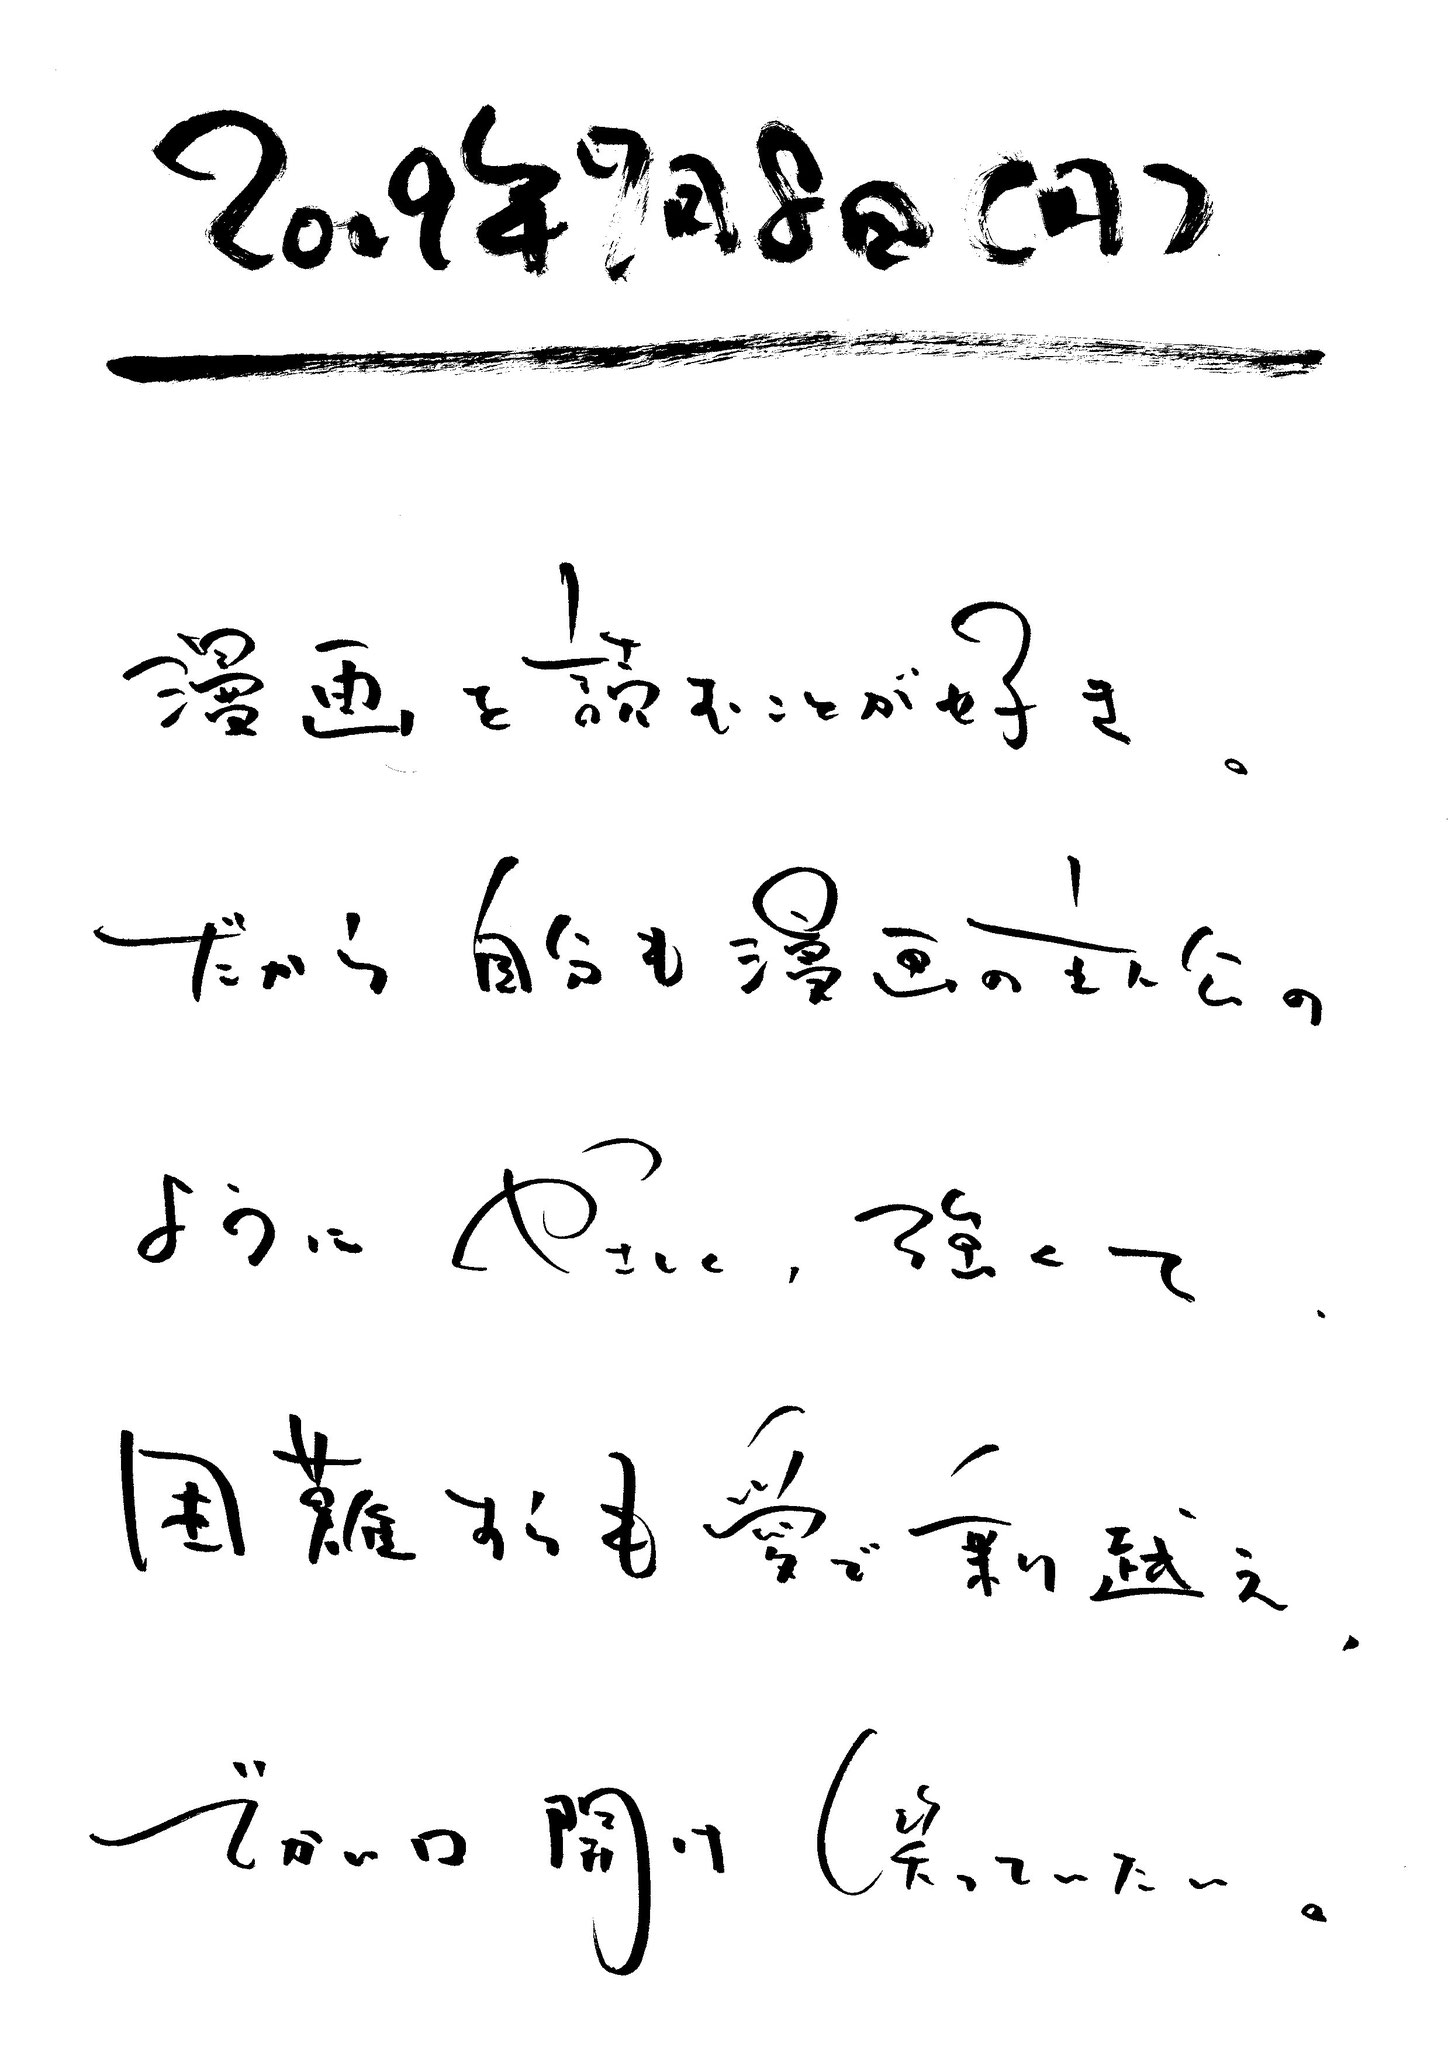 2019年7月8日(月)
漫画を読むことが好き。
だから自分も漫画の主人公の
ようにやさしく、強くて、
困難すらも愛で乗り越え、
でかい口開けて笑っていたい。